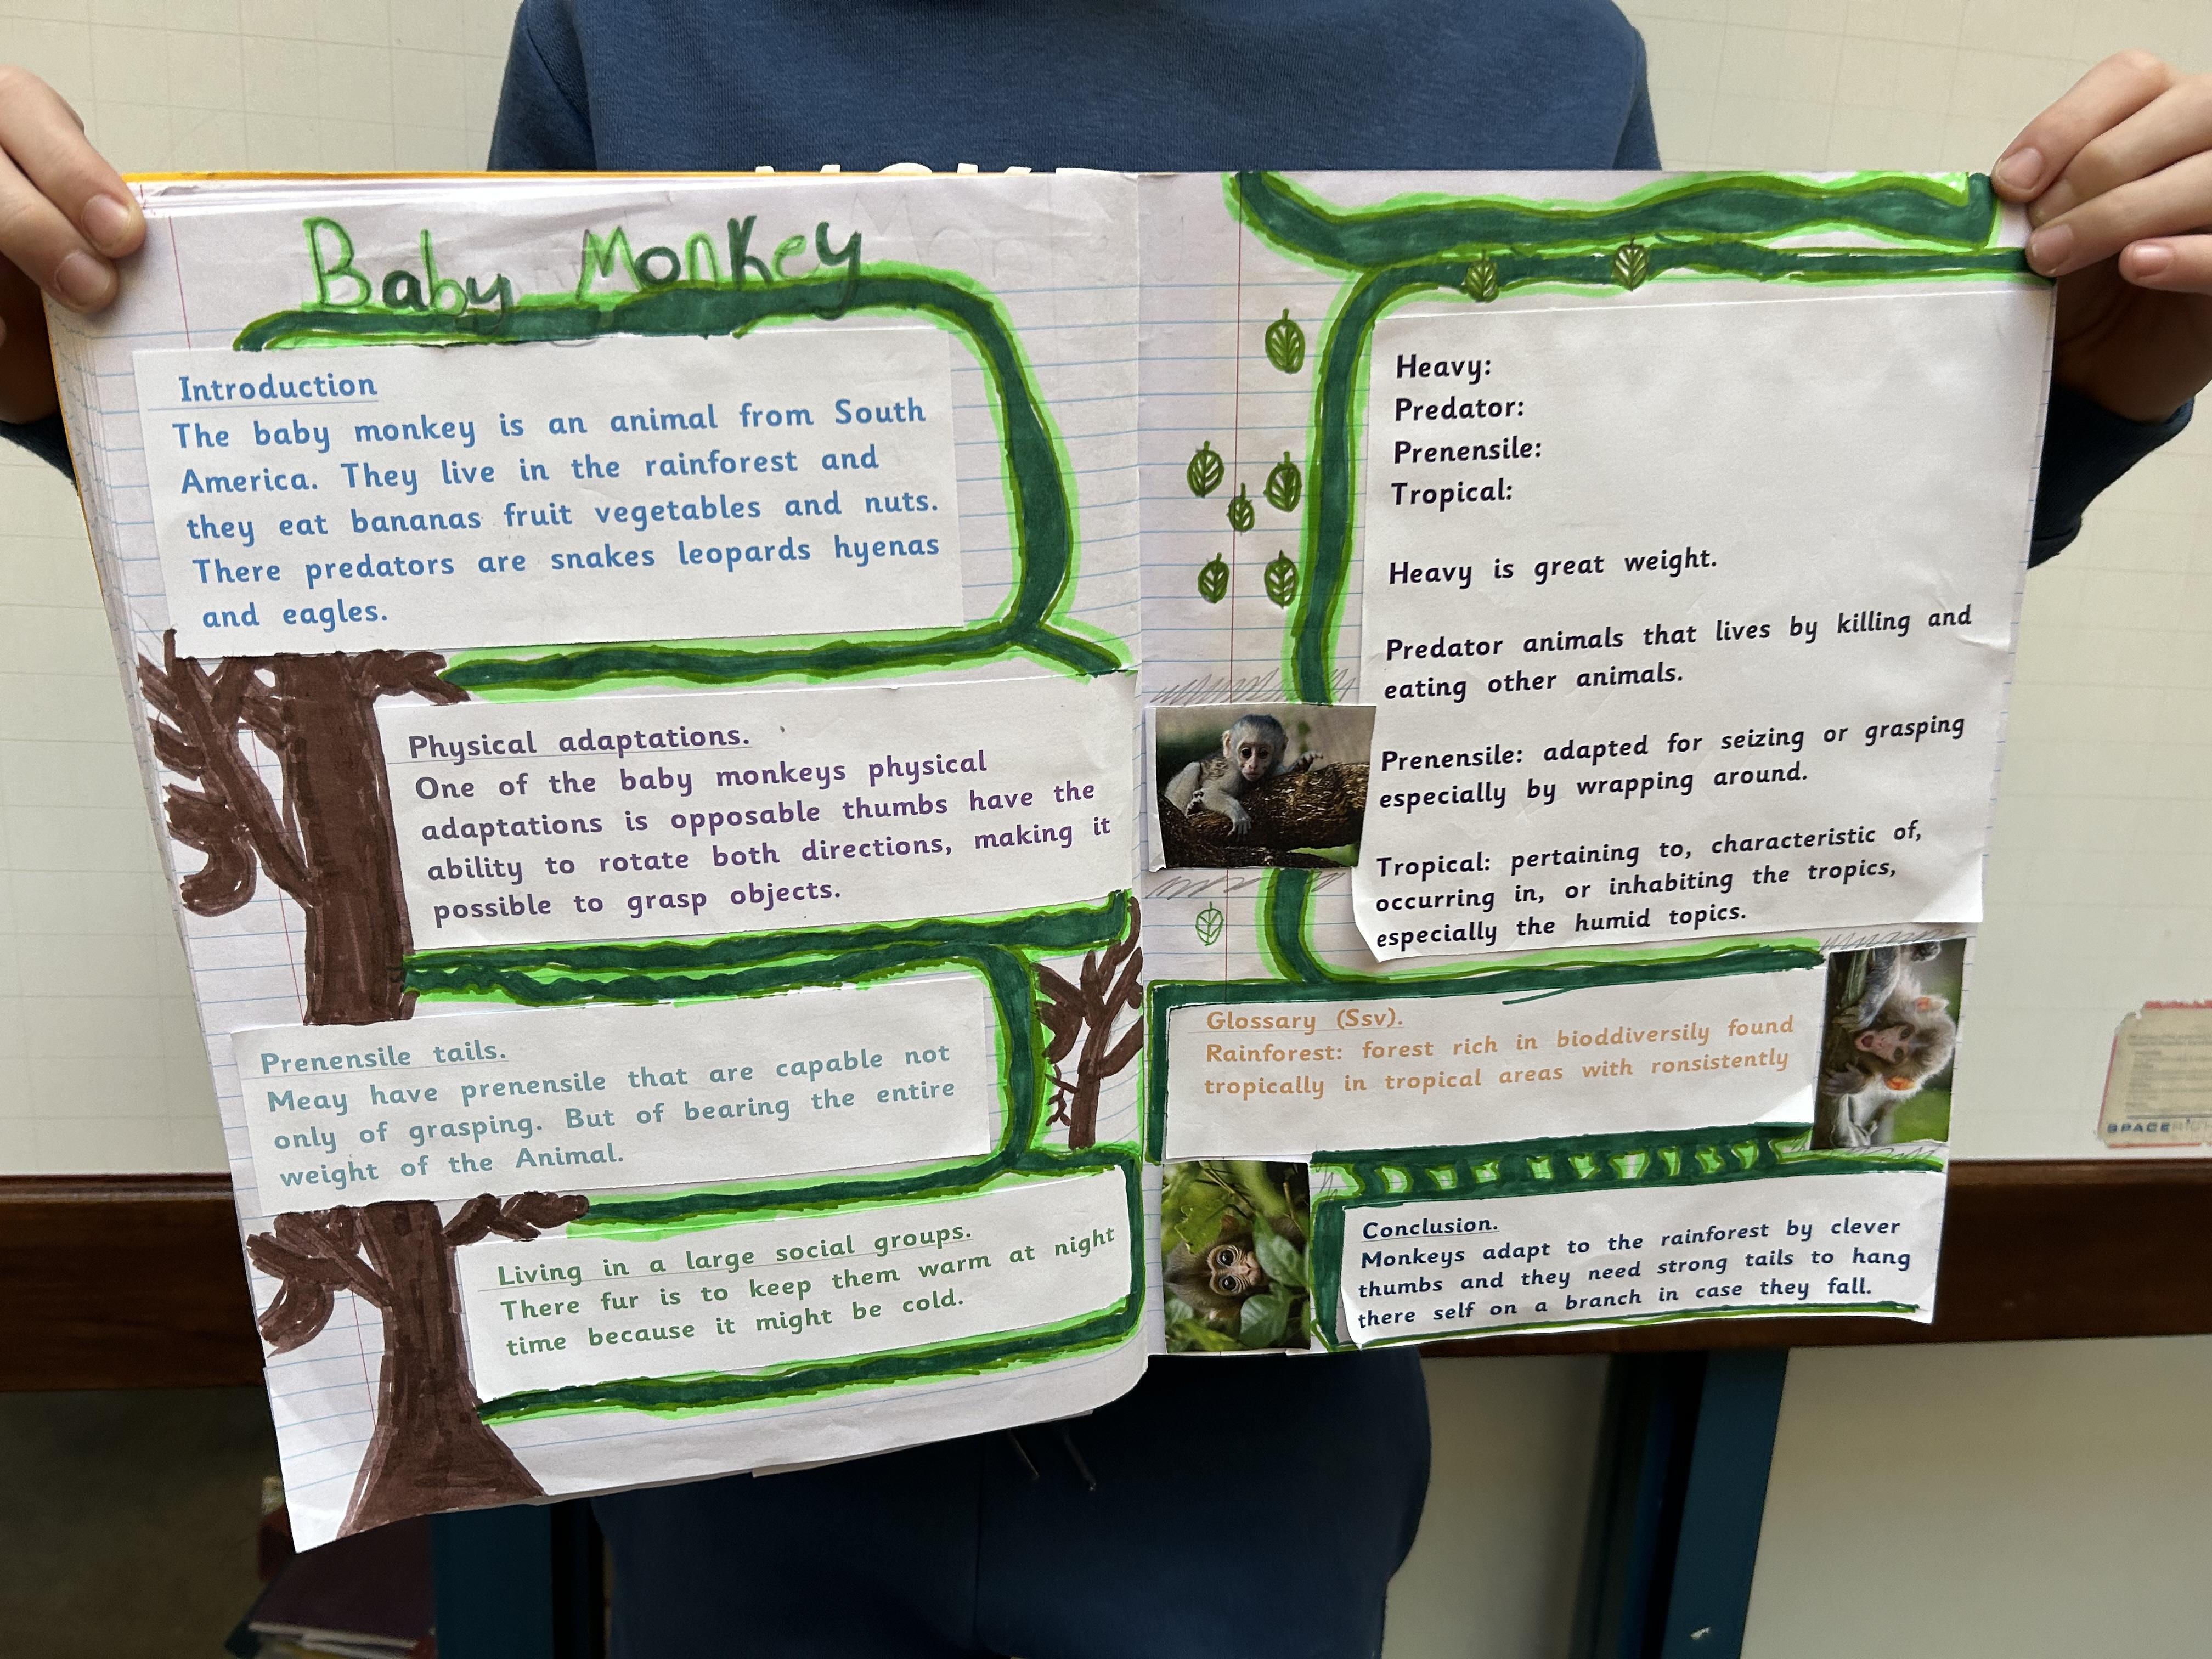 Baby Monkey
Introduction
The baby monkey is an animal from South
America. They live in the rainforest and
they eat bananas fruit vegetables and nuts.
There predators are snakes leopards hyenas
and eagles.
Physical adaptations.
One of the baby monkeys physical
adaptations is opposable thumbs have the
ability to rotate both directions, making it
possible to grasp objects.
Prenensile tails.
Meay have prenensile that are capable not
only of grasping. But of bearing the entire
weight of the Animal.
Living in a large social groups.
There fur is to keep them warm at night
time because it might be cold.
Heavy:
Predator:
Prenensile:
Tropical:
Heavy is great weight.
Predator animals that lives by killing and
eating other animals.
Prenensile: adapted for seizing or grasping
especially by wrapping around.
Tropical: pertaining to, characteristic of,
occurring in, or inhabiting the tropics,
especially the humid topics.
Glossary (Ssv).
Rainforest: forest rich in bioddiversily found
tropically in tropical areas with ronsistently
Conclusion.
Monkeys adapt to the rainforest by clever
thumbs and they need strong tails to hang
there self on a branch in case they fall.